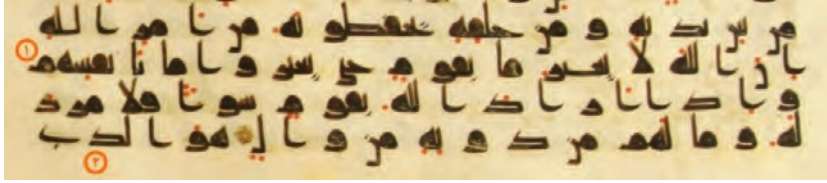 من بين يديه ومن خلفه يحفظونه من امر الله
ان الله لا يغير ما بقوم حتى يغيروا ما بانفسهم
واذا اراد الله بقوم سوا فلا مرد
له وما لهم من دونه من وال هو الذي
١